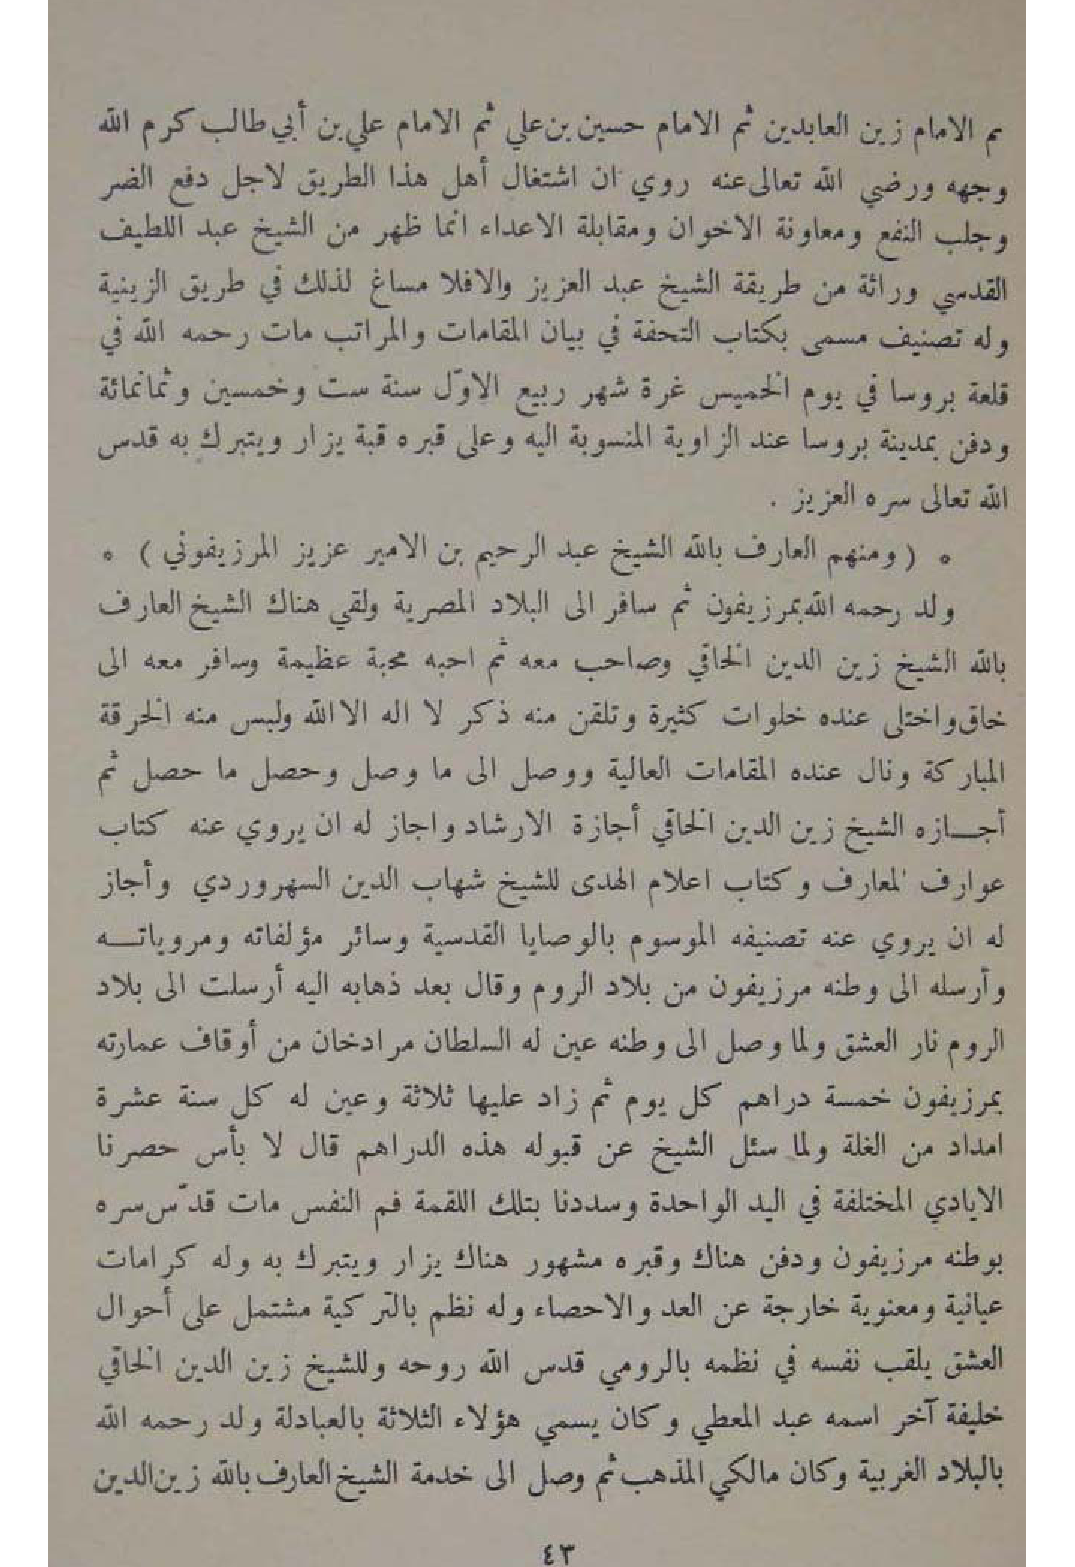 ثم الامام زين العابدين ثم الامام حسين بن علي ثم الامام علي بن أبي طالب كرم الله
وجهه ورضي الله تعالى عنه روي ان اشتغال أهل هذا الطريق لاجل دفع الضر
وجلب النفع ومعاونة الاخوان ومقابلة الاعداء انما ظهر من الشيخ عبد اللطيف
القدسي وراثة من طريقة الشيخ عبد العزيز والافلا مساغ لذلك في طريق الزينية
وله تصنيف مسمى بكتاب التحفة في بيان المقامات والمراتب مات رحمه الله في
قلعة بروسا في يوم الخميس غرة شهر ربيع الاوّل سنة ست وخمسين وثمانمائة
ودفن بمدينة بروسا عند الزاوية المنسوبة اليه وعلى قبره قبة يزار ويتبرك به قدس
الله تعالى سره العزيز .
* ( ومنهم العارف بالله الشيخ عبد الرحيم بن الامير عزيز المرزيفوني ) *
ولد رحمه الله بمرزيفون ثم سافر الى البلاد المصرية ولقي هناك الشيخ العارف
بالله الشيخ زين الدين الخافي وصاحب معه ثم احبه محبة عظيمة وسافر معه الى
خاق واختلى عنده خلوات كثيرة وتلقن منه ذكر لا اله الا الله ولبس منه الخرقة
المباركة ونال عنده المقامات العالية ووصل الى ما وصل وحصل ما حصل ثم
أجــازه الشيخ زين الدين الخافي أجازة الارشاد واجاز له ان يروي عنه كتاب
عوارف المعارف وكتاب اعلام الهدى للشيخ شهاب الدين السهروردي وأجاز
له ان يروي عنه تصنيفه الموسوم بالوصايا القدسية وسائر مؤلفاته ومروياتــه
وأرسله الى وطنه مرزيفون من بلاد الروم وقال بعد ذهابه اليه أرسلت الى بلاد
الروم نار العشق ولما وصل الى وطنه عين له السلطان مرادخان من أوقاف عمارته
بمرزيفون خمسة دراهم كل يوم ثم زاد عليها ثلاثة وعين له كل سنة عشرة
امداد من الغلة ولما سئل الشيخ عن قبوله هذه الدراهم قال لا بأس حصرنا
الايادي المختلفة في اليد الواحدة وسددنا بتلك اللقمة فم النفس مات قدّس سره
بوطنه مرزيفون ودفن هناك وقبره مشهور هناك يزار ويتبرك به وله كرامات
عيانية ومعنوية خارجة عن العد والاحصاء وله نظم بالتركية مشتمل على أحوال
العشق يلقب نفسه في نظمه بالرومي قدس الله روحه وللشيخ زين الدين الخافي
خليفة آخر اسمه عبد المعطي وكان يسمي هؤلاء الثلاثة بالعبادلة ولد رحمه الله
بالبلاد الغربية وكان مالكي المذهب ثم وصل الى خدمة الشيخ العارف بالله زين الدين
٤٣